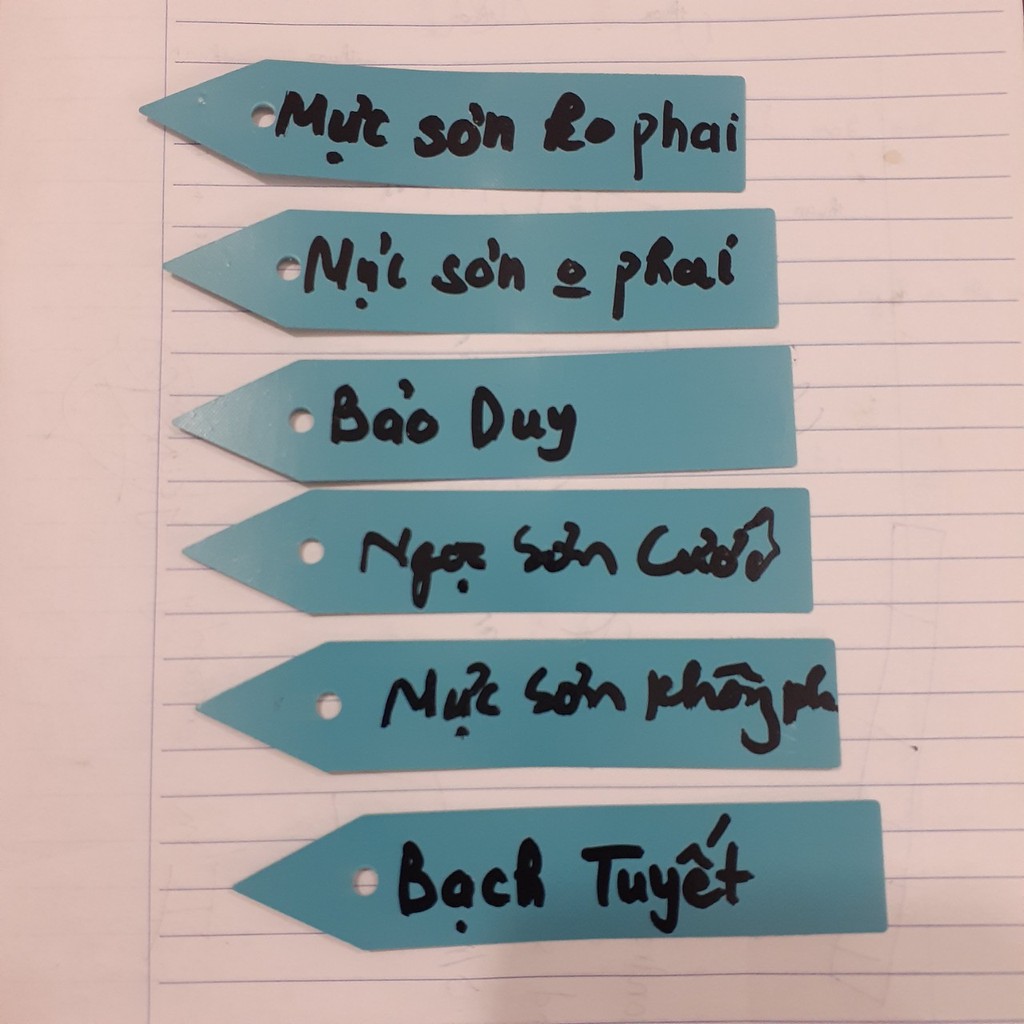 Mực sơn ko phai
Mực sơn o phai
Bảo Duy
Ngọc Sơn Cước
Mực sơn không pha
Bạch Tuyết